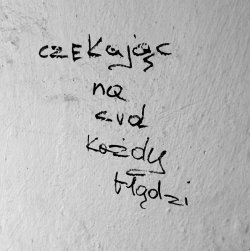 czekając
na
cud
każdy
błądzi